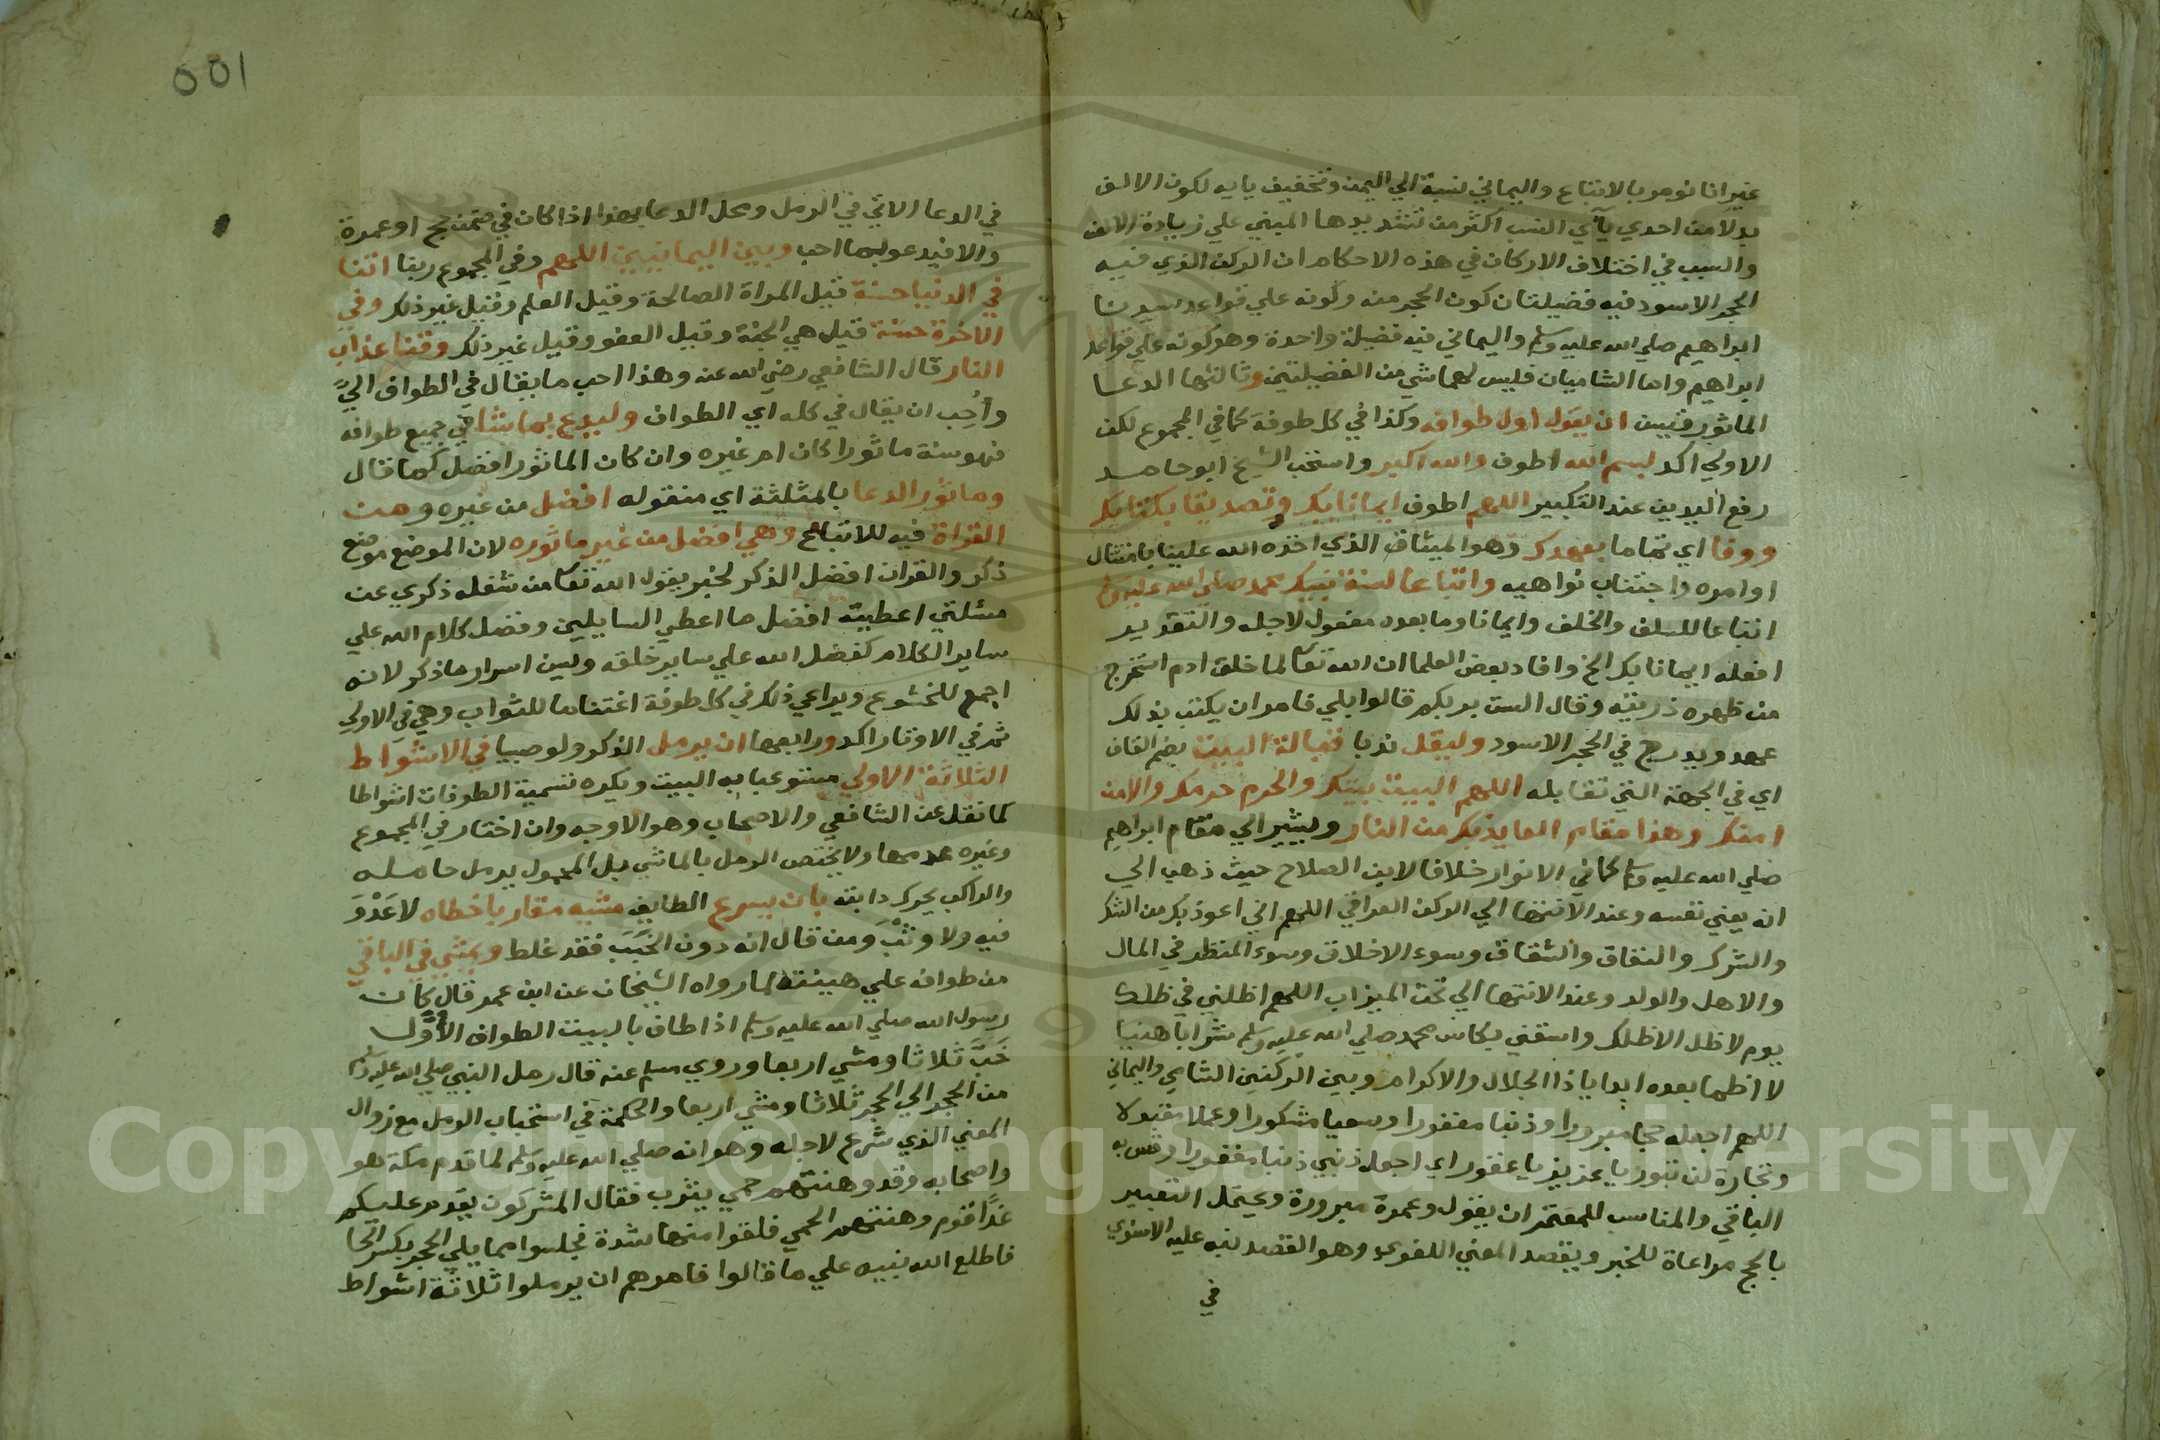 غير انا نومر بالاتباع واليماني نسبة الي اليمن وتخفيف يايه لكون الالف
بدلا من احدي يآي النسب اكثر من تشديدها المبني علي زيادة الالف
والسبب في اختلاف الاركان في هذه الاحكام ان الركن الذي فيه
الحجر الاسود فيه فضيلتان كون الحجر منه وكونه علي قواعد سيدنا
ابراهيم صلي الله عليه وسلم واليماني فيه فضيلة واحدة وهو كونه علي قواعد
ابراهيم واما الشاميان فليس لهما شي من الفضيلتين وثالثها الدعا
الماثور فيسن ان يقول اول طوافه وكذا في كل طوفة كما في المجموع لكن
الاولي اكد بسم الله اطوف والله اكبر واستحب الشيخ ابو حامد
رفع اليدين عند التكبير اللهم اطوف ايمانا بك وتصديقا بكتابك
ووفا اي تماما بعهدك وهو الميثاق الذي اخذه الله علينا بامتثال
اوامره واجتناب نواهيه واتباعا لسنة نبيك محمد صلي الله عليه وسلم
اتباعا للسلف والخلف وايمانا وما بعده مفعول لاجله والتقدير
افعله ايمانا بك الخ وافاد بعض العلما ان الله تعالى لما خلق ادم استخرج
من ظهره ذريته وقال الست بربكم قالوا بلي فامر ان يكتب بذلك
عهد ويدرج في الحجر الاسود وليقل ندبا قبالة البيت بضم القاف
اي في الجهة التي تقابله اللهم البيت بيتك والحرم حرمك والامن
امنك وهذا مقام العايذ بك من النار ويشير الي مقام ابراهيم
صلي الله عليه وسلم كما في الانوار خلافا لابن الصلاح حيث ذهب الي
انه يعني نفسه وعند الانتها الي الركن العراقي اللهم اني اعوذ بك من الشك
والشرك والنفاق والشقاق وسوء الاخلاق وسوء المنظر في المال
والاهل والولد وعند الانتها الي تحت الميزاب اللهم اظلني في ظلك
يوم لا ظل الا ظلك واسقني بكاس محمد صلي الله عليه وسلم شرابا هنيا
لا اظما بعده ابدا يا ذا الجلال والاكرام وبين الركنين الشامي واليماني
اللهم اجعله حجا مبرورا وذنبا مغفورا وسعيا مشكورا وعملا مقبولا
وتجارة لن تبور يا عزيز يا غفور اي اجعل ذنبي ذنبا مغفورا وقس به
الباقي والمناسب للمعتمر ان يقول وعمرة مبرورة ويحتمل التعبير
بالحج مراعاة للخبر ويقصد المعني اللغوي وهو القصد نبه عليه الاسنوي
في
001
في الدعا الاتي في الرمل ومحل الدعا بهذا اذا كان في ضمن حج او عمرة
والا فيدعو بما احب وبين اليمانيين اللهم وفي المجموع ربنا اتنا
في الدنيا حسنة قيل المراة الصالحة وقيل العلم وقيل غير ذلك وفي
الاخرة حسنة قيل هي الجنة وقيل العفو وقيل غير ذلك وقنا عذاب
النار قال الشافعي رضي الله عنه وهذا احب ما يقال في الطواف اليَّ
وأُحِب ان يقال في كله اي الطواف وليدع بما شا في جميع طوافه
فهو سنة ماثورا كان ام غيره وان كان الماثور افضل كما قال
وماثور الدعا بالمثلثة اي منقوله افضل من غيره ومن
القراة فيه للاتباع وهي افضل من غير ماثوره لان الموضع موضع
ذكر والقران افضل الذكر لخبر يقول الله تعالى من شغله ذكري عن
مسئلتي اعطيته افضل ما اعطي السايلين وفضل كلام الله علي
ساير الكلام كفضل الله علي ساير خلقه ويسن اسرار ما ذكر لانه
اجمع للخشوع ويراعي ذلك في كل طوفة اغتناما للثواب وهي في الاولي
ثم في الاوتار اكد ورابعها ان يرمل الذكر ولو صبيا في الاشواط
الثلاثة الاولي مستوعبا به البيت ويكره تسمية الطوفات اشواطا
كما نقل عن الشافعي والاصحاب وهو الاوجه وان اختار في المجموع
وغيره عدمها ولا يختص الرمل بالماشي بل المحمول يرمل حامله
والراكب يحرك دابته بان يسرع الطايف مشيه مقاربا خطاه لا عَدْوَ
فيه ولا وثْبَ ومن قال انه دون الخَبَبَ فقد غلط ويمشي في الباقي
من طوافه علي هينته لما رواه الشيخان عن ابن عمر قال كان
رسول الله صلي الله عليه وسلم اذا طاف بالبيت الطواف الأوَّل
خَبَّ ثلاثا ومشي اربعا وروي مسلم عنه قال رمل النبي صلي الله عليه وسلم
من الحجر الي الحجر ثلاثا ومشي اربعا والحكمة في استحباب الرمل مع زوال
المعني الذي شرع لاجله وهو انه صلي الله عليه وسلم لما قدم مكة هو
واصحابه وقد وهنتهم حمي يثرب فقال المشركون يقدم عليكم
غدًا قوم وهنتهم الحمي فلقوا منها شدة فجلسوا مما يلي الحجر بكسر الحا
فاطلع الله نبيه علي ما قالوا فامرهم ان يرملوا ثلاثة اشواط
Copyright © King Saud University